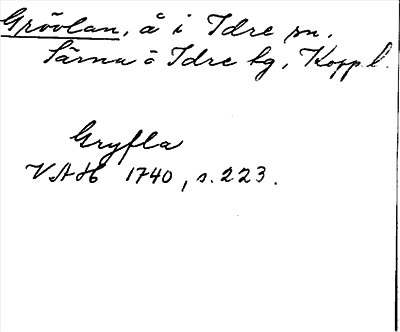 Grövlan, å i Idre sn.
Särna o Idre tg, Kopp. l.
Gryfla
VAH 1740, s. 223.